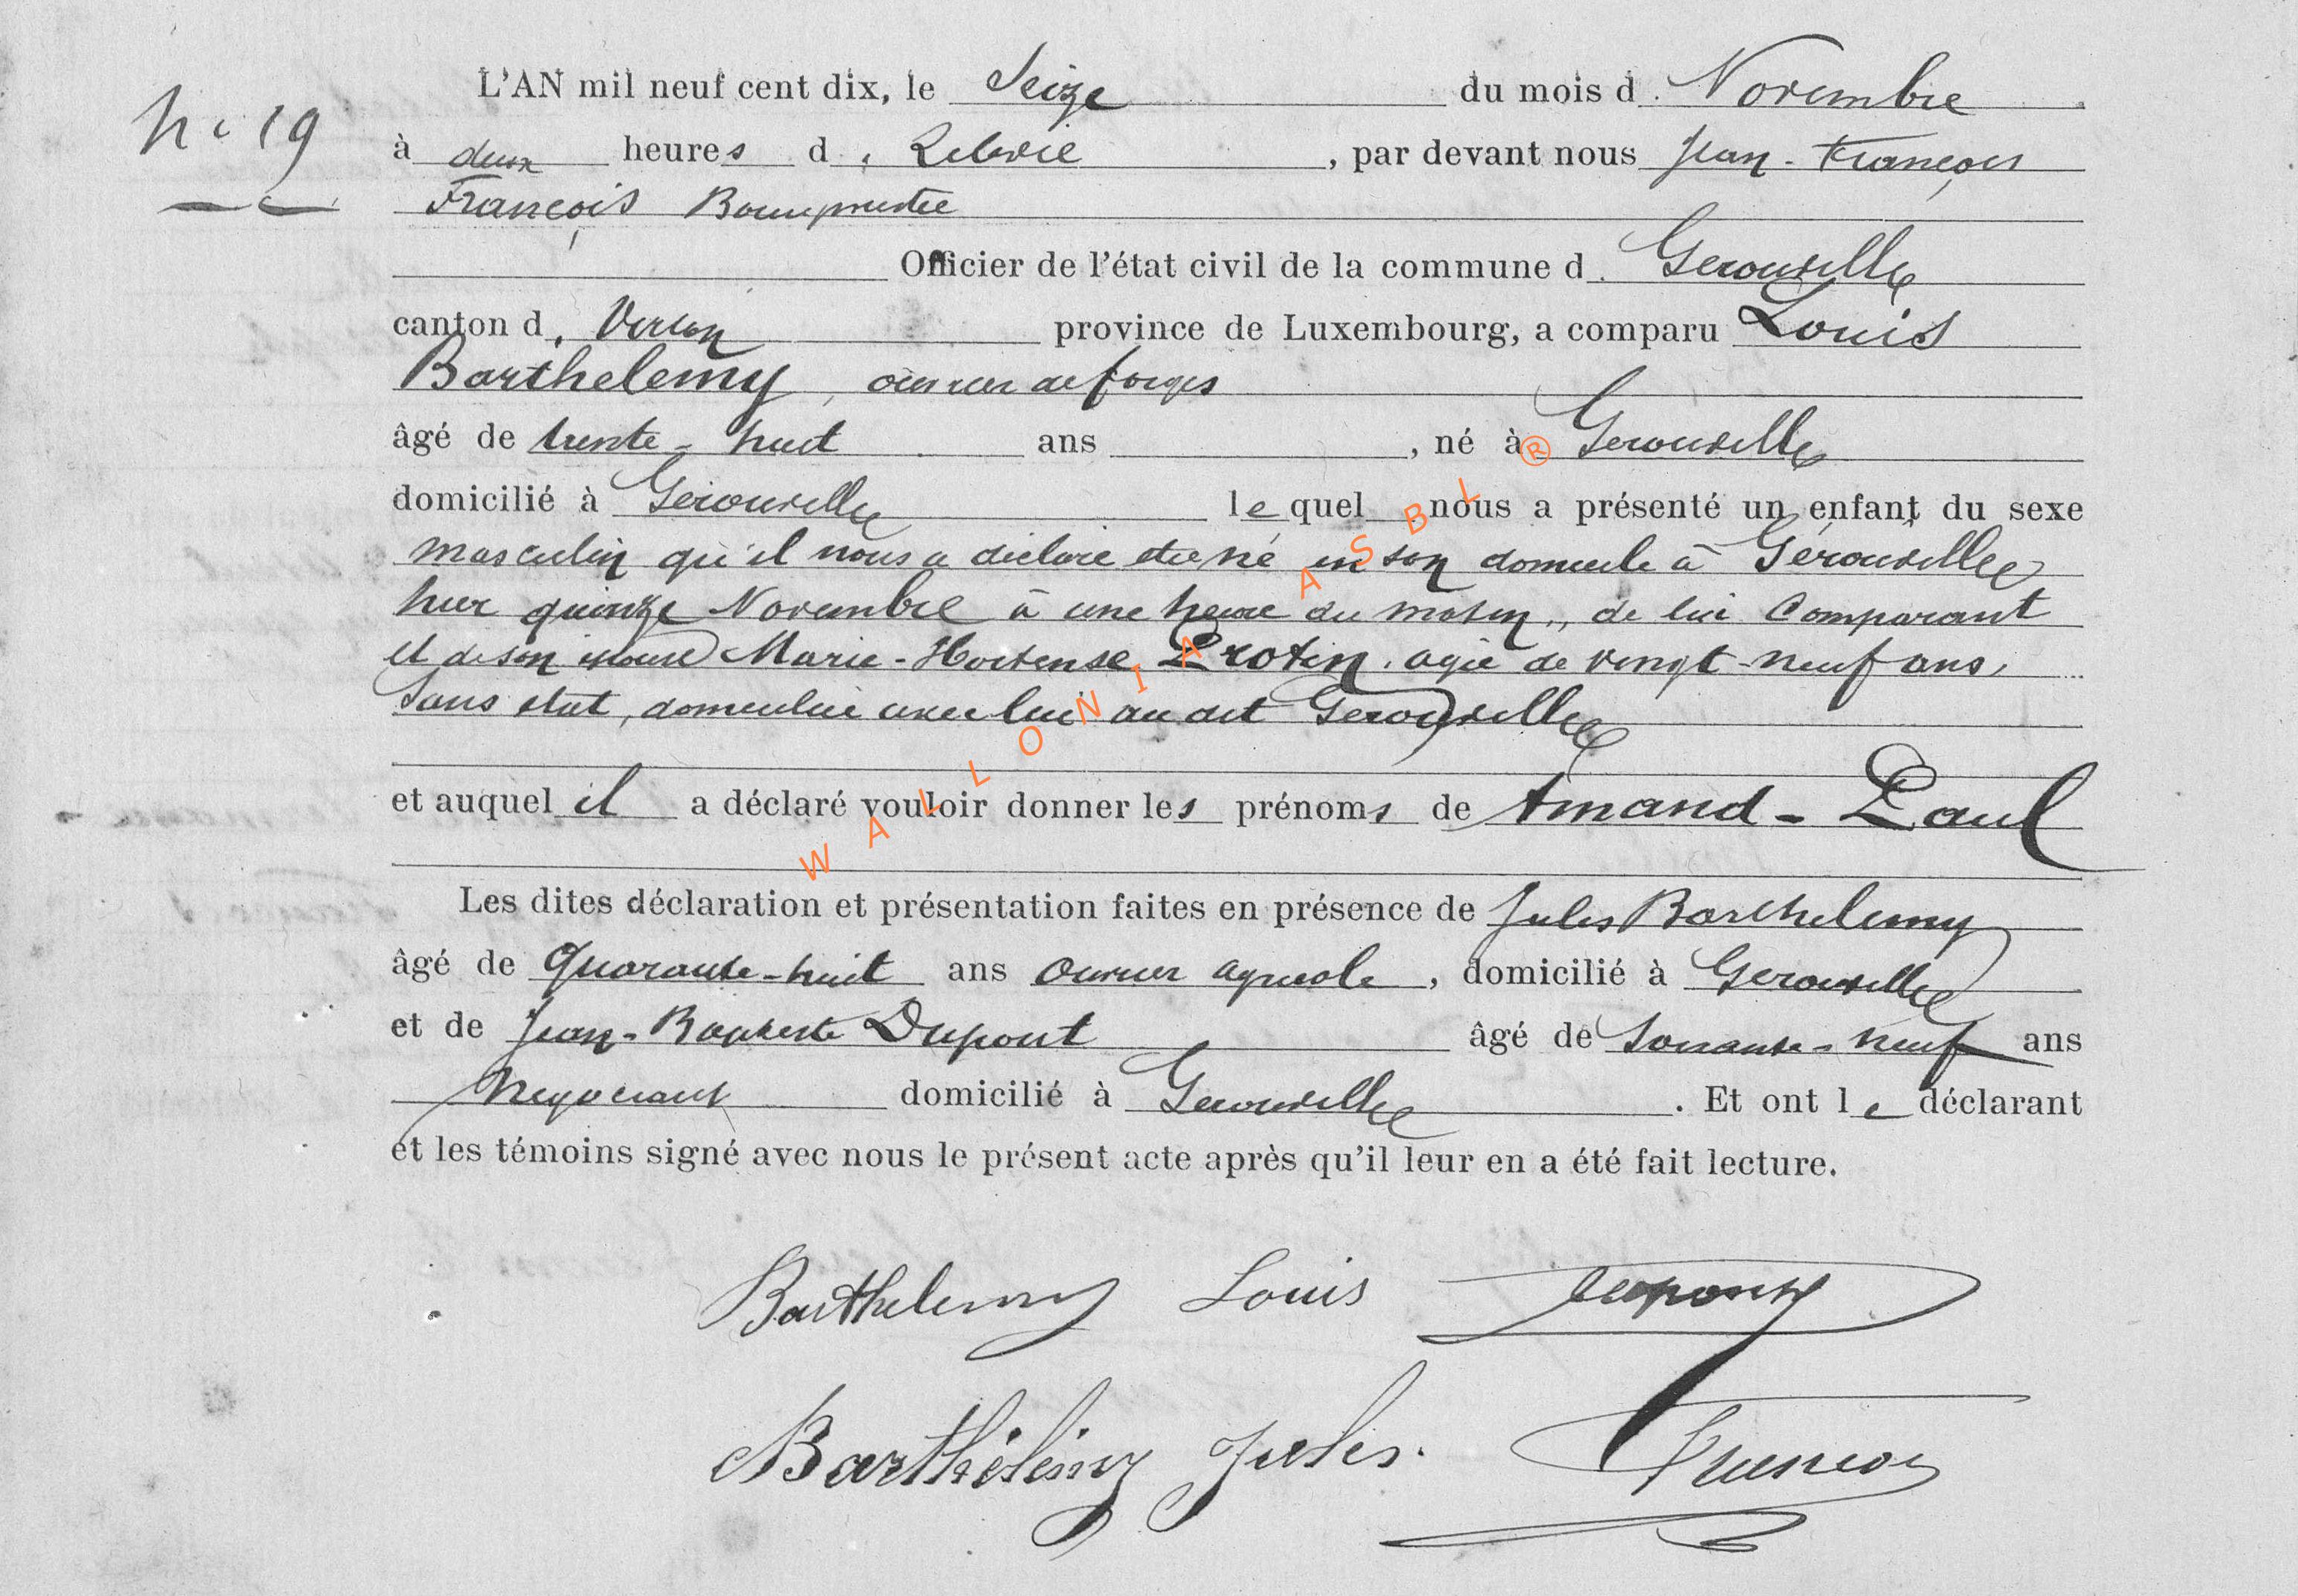 N° 19
L'AN mil neuf cent dix, le Seize du mois d. Novembre
à deux heures d. Relevée, par devant nous Jean-François
François
Officier de l'état civil de la commune d. Gerouville
canton d. Virton province de Luxembourg, a comparu Louis
Barthelemy, ouvrier de forges
âgé de trente-huit ans, né à Gerouville
domicilié à Gérouville lequel nous a présenté un enfant du sexe
masculin qu'il nous a déclaré être né en son domicile à Gérouville
hier quinze Novembre à une heure du matin, de lui Comparant
et de son épouse Marie-Hortense Protin, agée de vingt-neuf ans,
sans état, domiciliée avec lui au dit Gerouville
et auquel il a déclaré vouloir donner les prénoms de Amand-Paul
Les dites déclaration et présentation faites en présence de Jules Barthelemy
âgé de Quarante-huit ans ouvrier agricole, domicilié à Gerouville
et de Jean-Baptiste Dupont âgé de Soixante-neuf ans
Négociant domicilié à Gerouville. Et ont le déclarant
et les témoins signé avec nous le présent acte après qu'il leur en a été fait lecture.
Barthelemy Louis Dupont
Barthélémy Jules.
WALLONIA ASBL ®